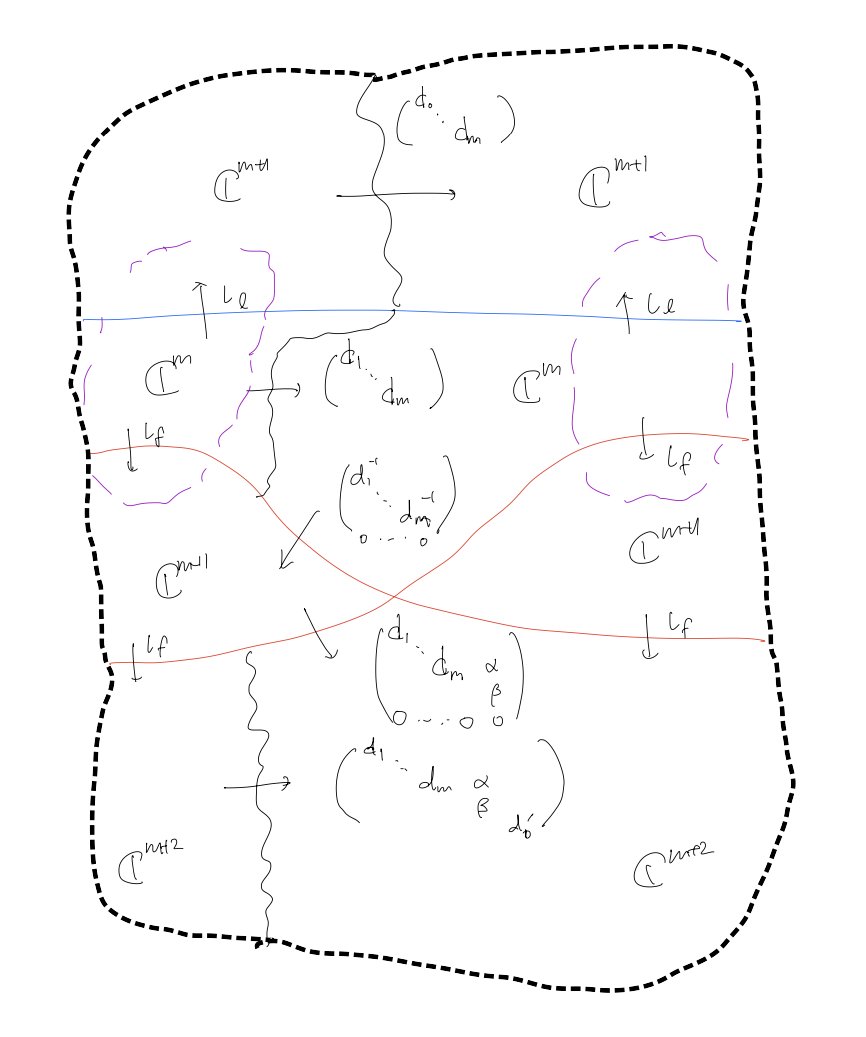 (d₀ ⋱ dₘ)
ℂᵐ⁺¹ → ℂᵐ⁺¹
↑ ιℓ ↑ ιℓ
ℂᵐ → (d₁ ⋱ dₘ) ℂᵐ
↓ ιf ↓ ιf
(d₁⁻¹ ⋱ dₘ⁻¹
0 ⋯ 0)
ℂᵐ⁺¹ ℂᵐ⁺¹
↓ ιf ↓ ιf
(d₁ ⋱ dₘ α
β
0 ⋯ 0 0)
(d₁ ⋱ dₘ α
β
d₀′)
ℂᵐ⁺² ℂᵐ⁺²